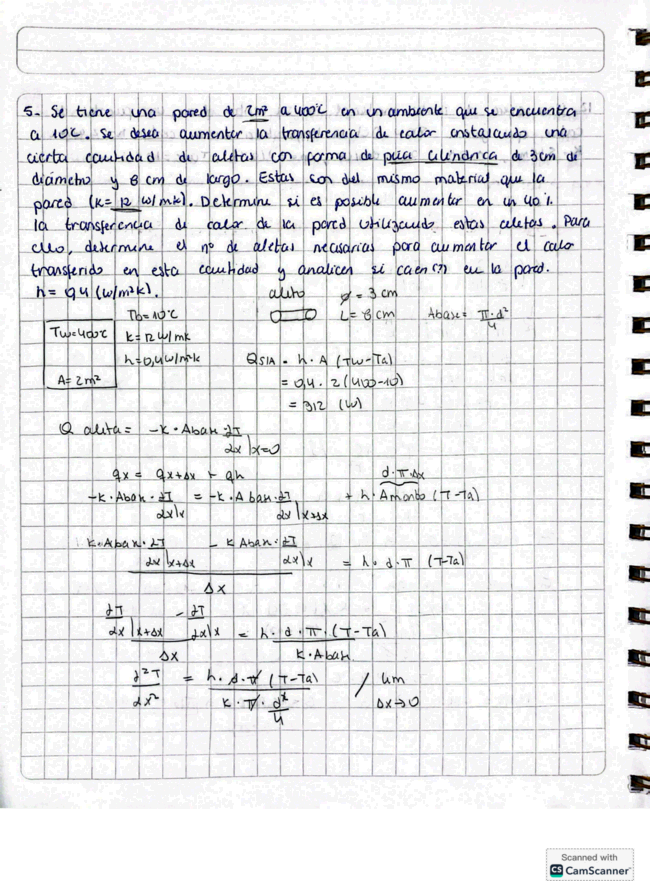 5.- Se tiene una pared de 2m² a 400°C en un ambiente que se encuentra
a 10°C. Se desea aumentar la transferencia de calor instalando una
cierta cantidad de aletas con forma de púa cilíndrica de 3cm de
diámetro y 8 cm de largo. Estas son del mismo material que la
pared (k= 12 w/mk). Determine si es posible aumentar en un 40%
la transferencia de calor de la pared utilizando estas aletas. Para
ello, determine el n° de aletas necesarias para aumentar el calor
transferido en esta cantidad y analicen si caen (?) en la pared.
h= 0,4 (w/m²k).
Tw=400°C
A= 2m²
Tb=10°C
k=12 w/mk
h=0,4w/m²k
ø= 3 cm
L= 8 cm
Abase= π·d²/4
QS/A = h·A (Tw-Ta)
= 0,4·2(400-10)
= 312 (w)
Q alita= -k·Aban dT/dx|x=0
qx = qx+Δx + qh
-k·Aban·dT/dx|x = -k·Aban·dT/dx|x+Δx + h·Amanto (T-Ta)
d·π·Δx
k·Aban·dT/dx|x+Δx - k Aban·dT/dx|x = h·d·π (T-Ta)
Δx
dT/dx|x+Δx - dT/dx|x = h·d·π·(T-Ta)
Δx k·Aban
d²T/dx² = h·d·π (T-Ta) / lim Δx→0
k·π·d²/4
Scanned with
CS CamScanner